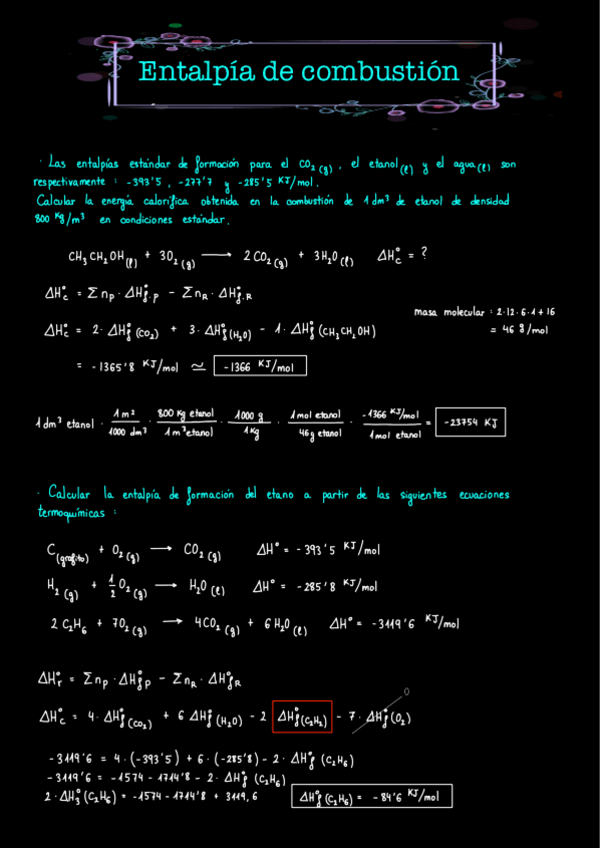 Entalpía de combustión
· Las entalpías estándar de formación para el CO₂ (g), el etanol (l) y el agua (l) son
respectivamente : -393'5, -277'7 y -285'5 KJ/mol.
Calcular la energía calorífica obtenida en la combustión de 1 dm³ de etanol de densidad
800 Kg/m³ en condiciones estándar.
CH₃CH₂OH (l) + 3O₂ (g) ⟶ 2CO₂ (g) + 3H₂O (l) ΔH°c = ?
ΔH°c = Σnp · ΔH°f.p - ΣnR · ΔH°f.R
masa molecular : 2·12·6·1+16
ΔH°c = 2 · ΔH°f (CO₂) + 3 · ΔH°f (H₂O) - 1 · ΔH°f (CH₃CH₂OH)
= 46 g/mol
= -1365'8 KJ/mol ≃ -1366 KJ/mol
1 dm³ etanol · 1 m³/1000 dm³ · 800 Kg etanol/1 m³ etanol · 1000 g/1 Kg · 1 mol etanol/46 g etanol · -1366 KJ/mol/1 mol etanol = -23754 KJ
· Calcular la entalpía de formación del etano a partir de las siguientes ecuaciones
termoquímicas :
C (grafito) + O₂ (g) ⟶ CO₂ (g) ΔH° = -393'5 KJ/mol
H₂ (g) + 1/2 O₂ (g) ⟶ H₂O (l) ΔH° = -285'8 KJ/mol
2 C₂H₆ + 7O₂ (g) ⟶ 4CO₂ (g) + 6H₂O (l) ΔH° = -3119'6 KJ/mol
ΔH°r = Σnp · ΔH°f P - ΣnR · ΔH°f R
0
ΔH°c = 4 · ΔH°f (CO₂) + 6 ΔH°f (H₂O) - 2 ΔH°f (C₂H₂) - 7 · ΔH°f (O₂)
-3119'6 = 4 · (-393'5) + 6 · (-285'8) - 2 · ΔH°f (C₂H₆)
-3119'6 = -1574 - 1714'8 - 2 · ΔH°f (C₂H₆)
2 · ΔH°f (C₂H₆) = -1574 - 1714'8 + 3119,6 ΔH°f (C₂H₆) = -84'6 KJ/mol